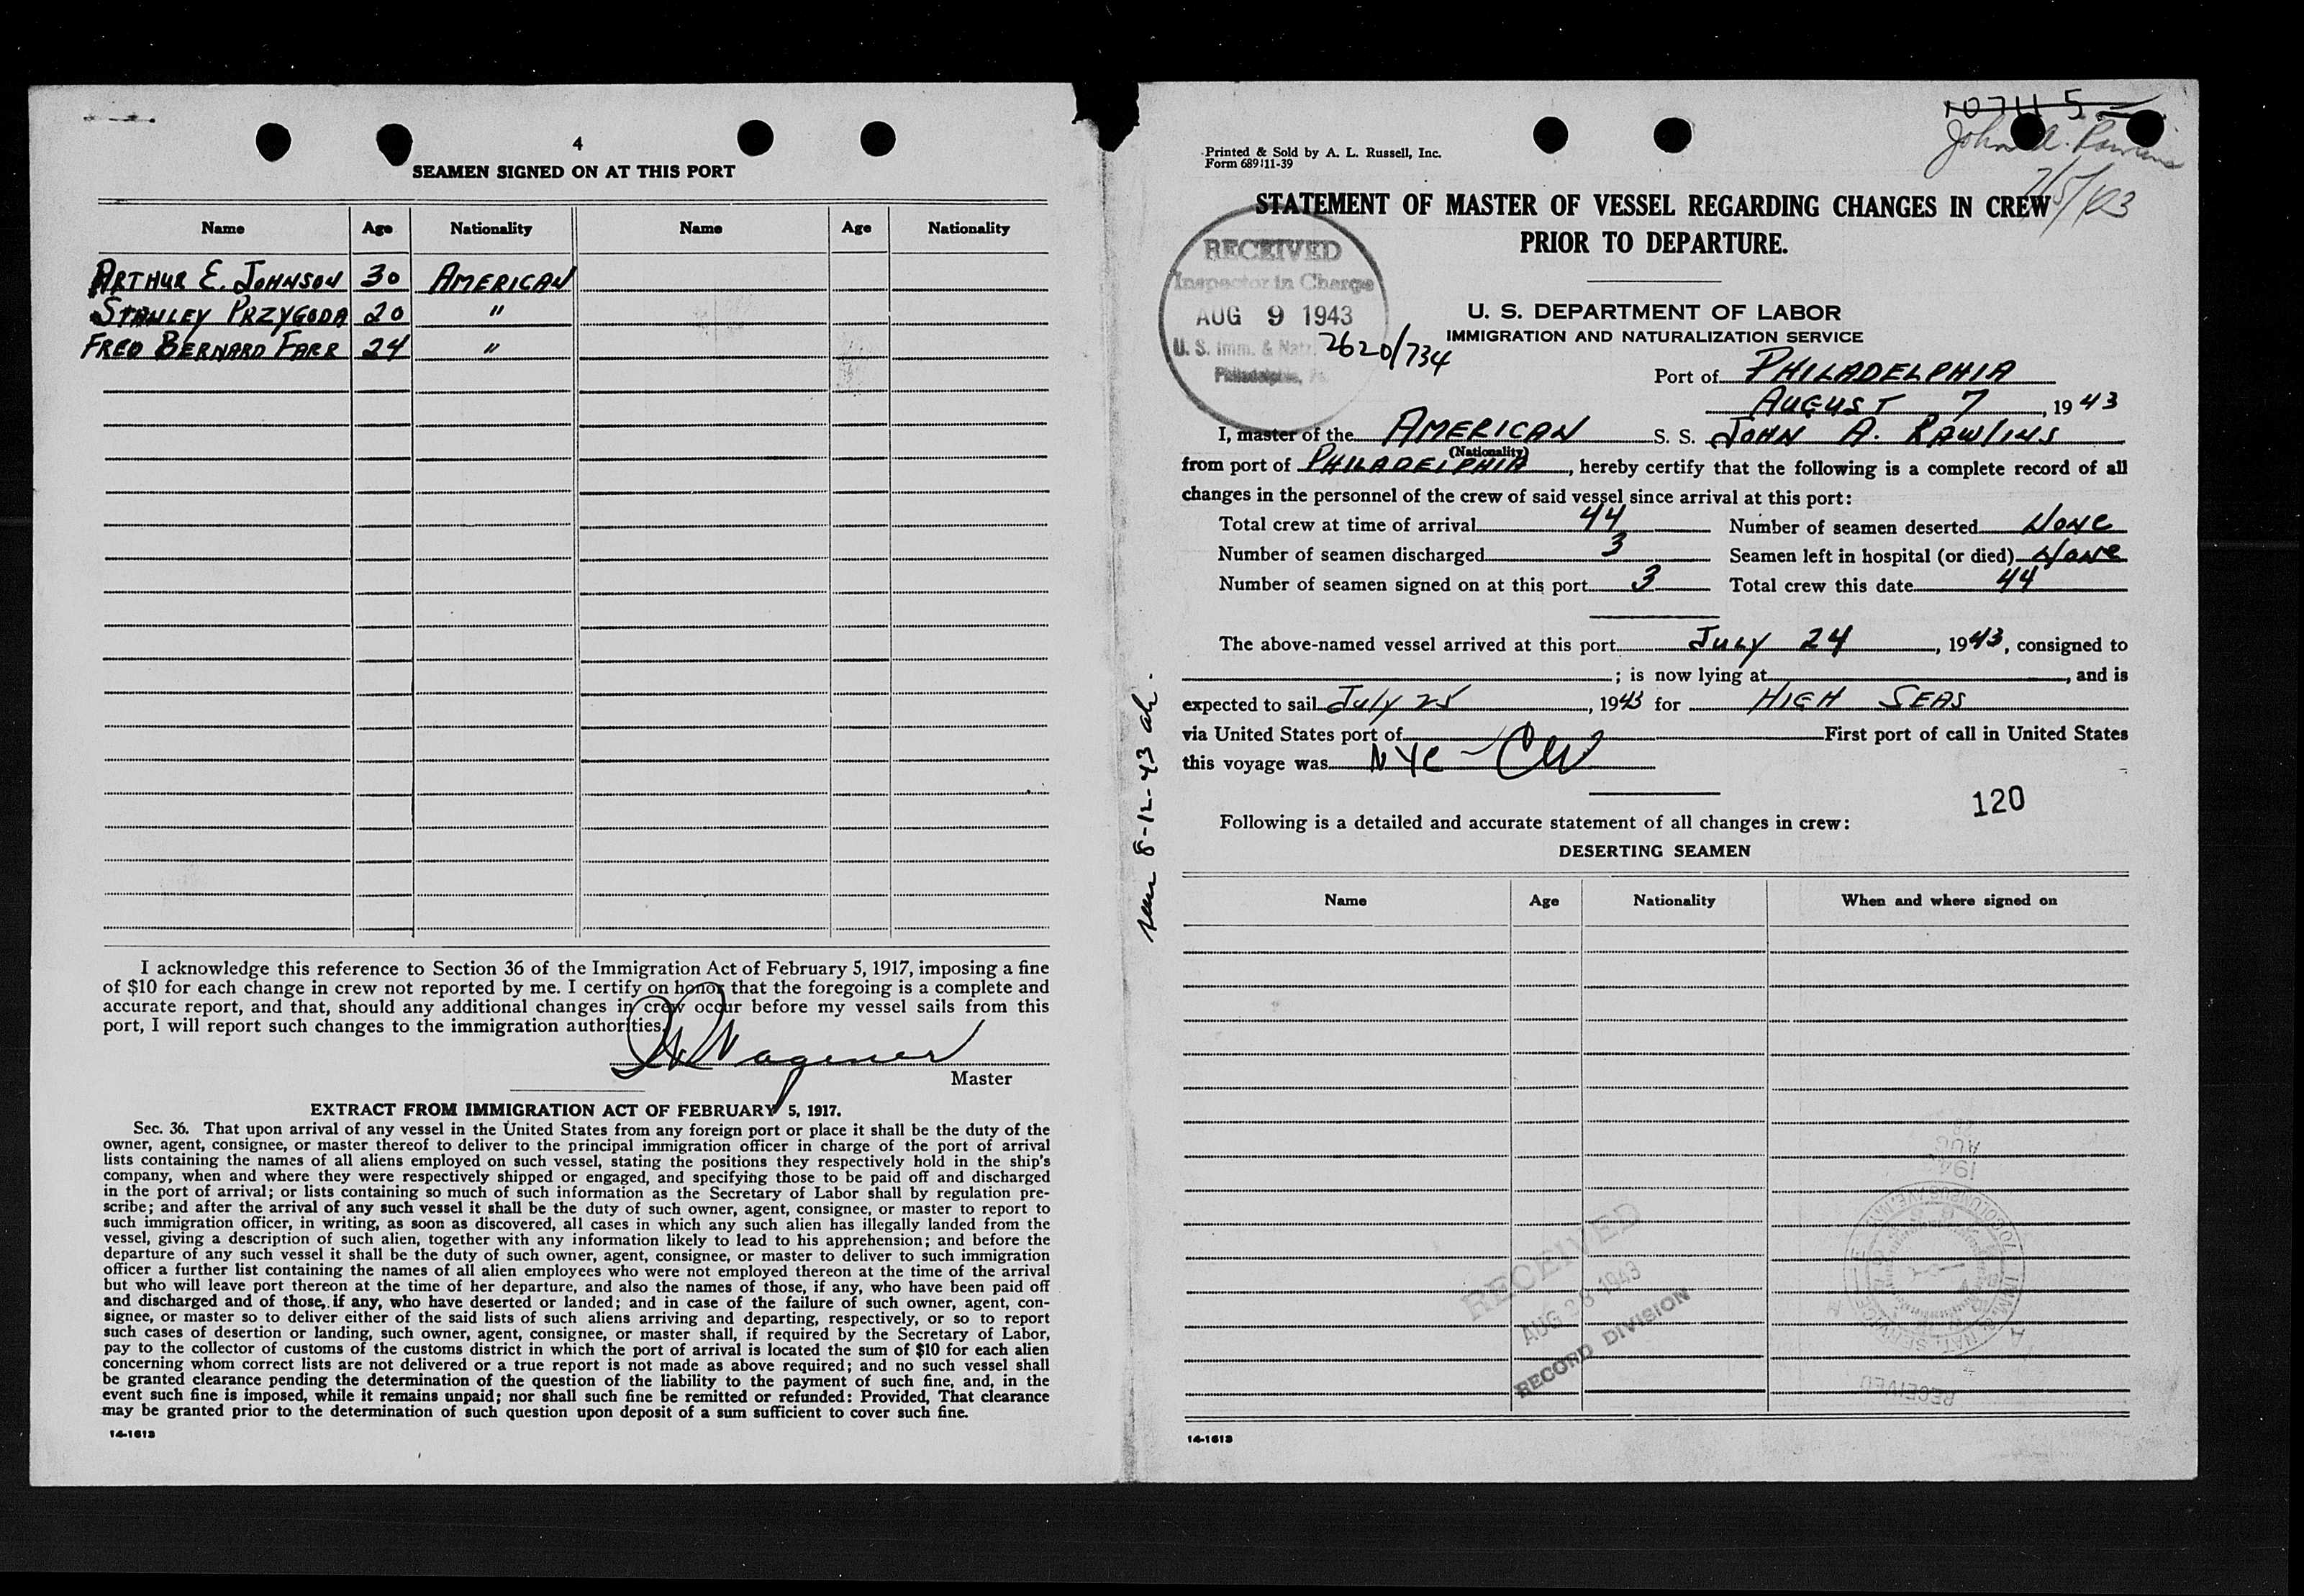 4
SEAMEN SIGNED ON AT THIS PORT
Name Age Nationality Name Age Nationality
ARTHUR E. JOHNSON 30 AMERICAN
STANLEY PRZYGODA 20 "
FRED BERNARD FARR 24 "
I acknowledge this reference to Section 36 of the Immigration Act of February 5, 1917, imposing a fine
of $10 for each change in crew not reported by me. I certify on honor that the foregoing is a complete and
accurate report, and that, should any additional changes in crew occur before my vessel sails from this
port, I will report such changes to the immigration authorities.
Wagener
Master
EXTRACT FROM IMMIGRATION ACT OF FEBRUARY 5, 1917.
Sec. 36. That upon arrival of any vessel in the United States from any foreign port or place it shall be the duty of the
owner, agent, consignee, or master thereof to deliver to the principal immigration officer in charge of the port of arrival
lists containing the names of all aliens employed on such vessel, stating the positions they respectively hold in the ship's
company, when and where they were respectively shipped or engaged, and specifying those to be paid off and discharged
in the port of arrival; or lists containing so much of such information as the Secretary of Labor shall by regulation pre-
scribe; and after the arrival of any such vessel it shall be the duty of such owner, agent, consignee, or master to report to
such immigration officer, in writing, as soon as discovered, all cases in which any such alien has illegally landed from the
vessel, giving a description of such alien, together with any information likely to lead to his apprehension; and before the
departure of any such vessel it shall be the duty of such owner, agent, consignee, or master to deliver to such immigration
officer a further list containing the names of all alien employees who were not employed thereon at the time of the arrival
but who will leave port thereon at the time of her departure, and also the names of those, if any, who have been paid off
and discharged and of those, if any, who have deserted or landed; and in case of the failure of such owner, agent, con-
signee, or master so to deliver either of the said lists of such aliens arriving and departing, respectively, or so to report
such cases of desertion or landing, such owner, agent, consignee, or master shall, if required by the Secretary of Labor,
pay to the collector of customs of the customs district in which the port of arrival is located the sum of $10 for each alien
concerning whom correct lists are not delivered or a true report is not made as above required; and no such vessel shall
be granted clearance pending the determination of the question of the liability to the payment of such fine, and, in the
event such fine is imposed, while it remains unpaid; nor shall such fine be remitted or refunded: Provided, That clearance
may be granted prior to the determination of such question upon deposit of a sum sufficient to cover such fine.
14-1613
8-12-43
John A. Rawlins
Printed & Sold by A. L. Russell, Inc.
Form 689 11-39
STATEMENT OF MASTER OF VESSEL REGARDING CHANGES IN CREW
PRIOR TO DEPARTURE.
RECEIVED
Inspector in Charge
AUG 9 1943
U. S. Imm. & Natz.
Philadelphia, Pa.
2620/734
U. S. DEPARTMENT OF LABOR
IMMIGRATION AND NATURALIZATION SERVICE
Port of PHILADELPHIA
AUGUST 7, 1943
I, master of the AMERICAN S. S. JOHN A. RAWLINS
(Nationality)
from port of PHILADELPHIA, hereby certify that the following is a complete record of all
changes in the personnel of the crew of said vessel since arrival at this port:
Total crew at time of arrival 44 Number of seamen deserted None
Number of seamen discharged 3 Seamen left in hospital (or died) None
Number of seamen signed on at this port 3 Total crew this date 44
The above-named vessel arrived at this port July 24, 1943, consigned to
; is now lying at , and is
expected to sail July 25, 1943 for HIGH SEAS
via United States port of First port of call in United States
this voyage was NYC - CW
120
Following is a detailed and accurate statement of all changes in crew:
DESERTING SEAMEN
Name Age Nationality When and where signed on
RECEIVED
AUG 28 1943
RECORD DIVISION
RECEIVED
14-1613